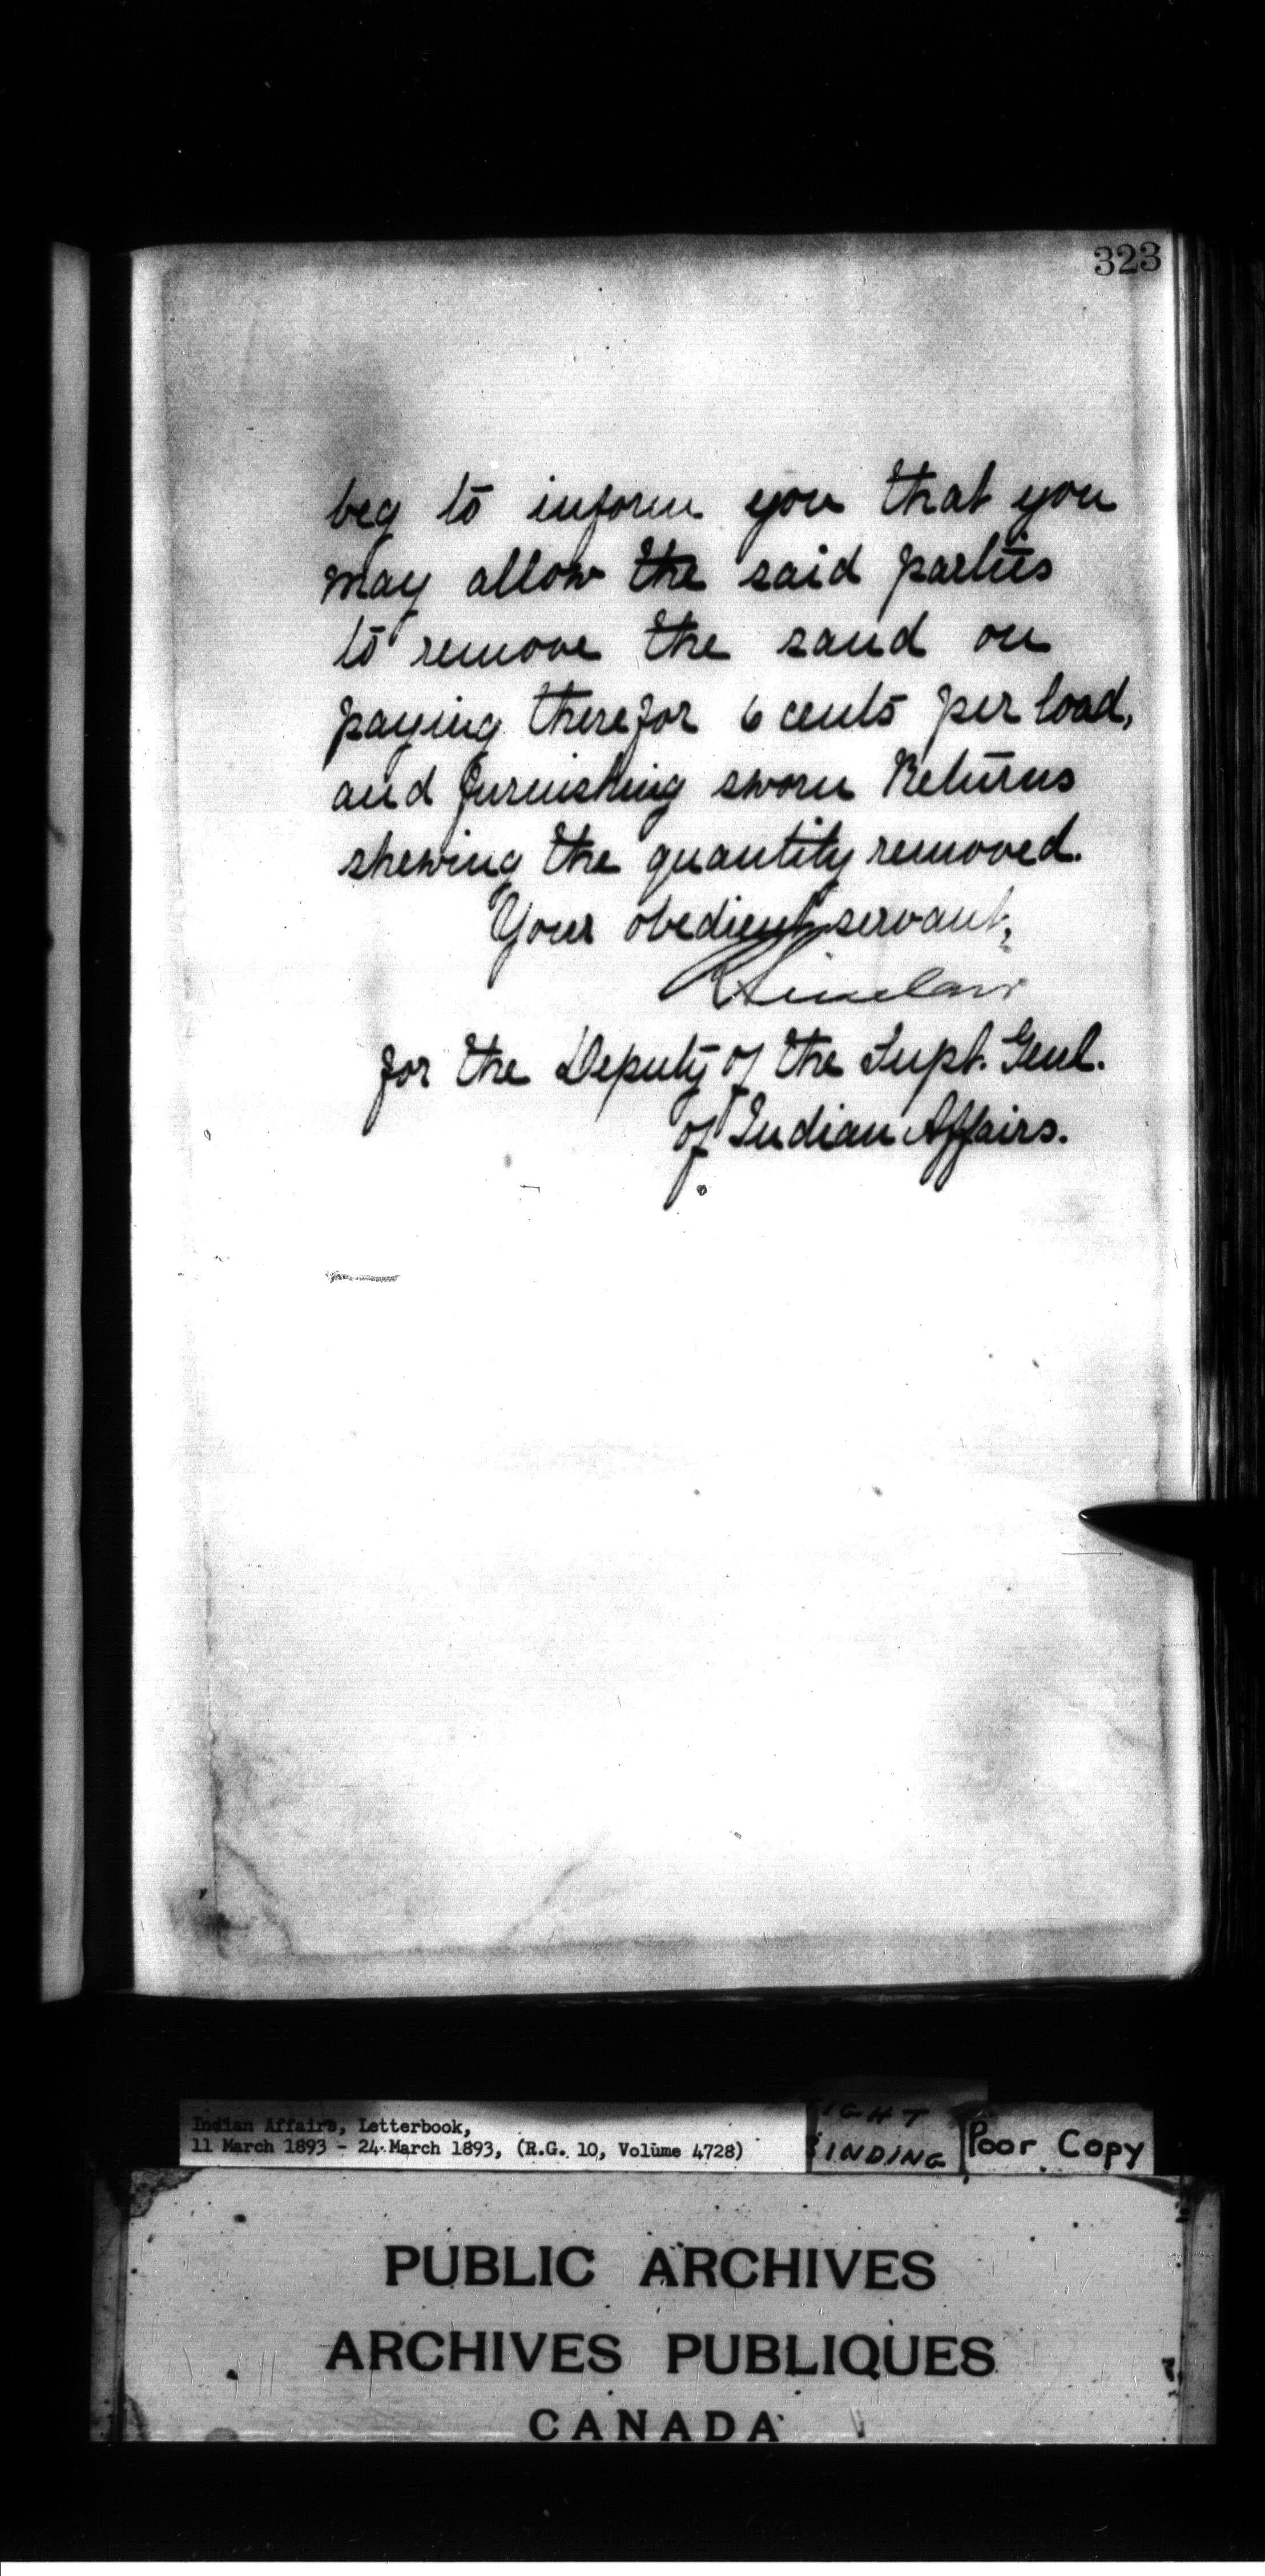 323
beg to inform you that you
may allow the said parties
to remove the sand on
paying therefor 6 cents per load,
and furnishing sworn Returns
shewing the quantity removed.
Your obedient servant,
Sinclair
for the Deputy of the Supt. Genl.
of Indian Affairs.
Indian Affairs, Letterbook,
11 March 1893 - 24 March 1893, (R.G. 10, Volume 4728)
IGHT
INDING
Poor Copy
PUBLIC ARCHIVES
ARCHIVES PUBLIQUES
CANADA